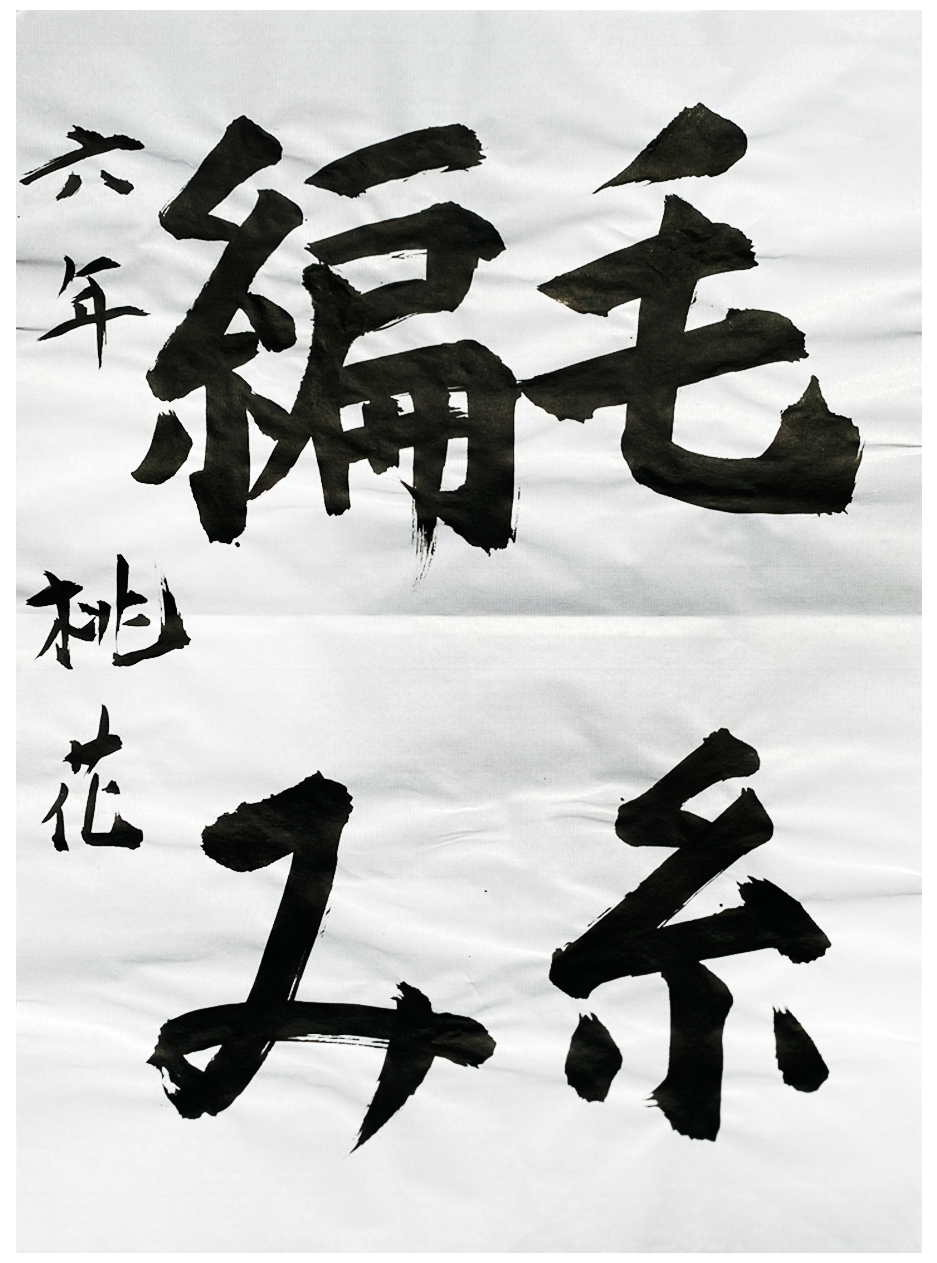 毛糸
編み
六年 桃花